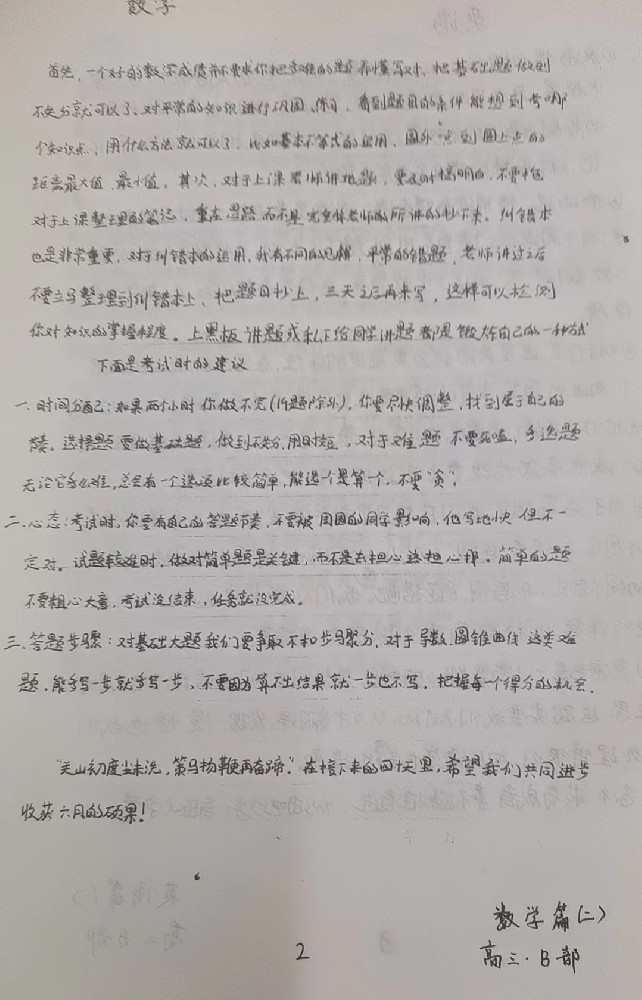 数学
首先,一个好的数学成绩并不要求你把多难的题弄懂写对、把基础题做到
不失分就可以了、对平常的知识进行巩固、练习,看到题目的条件能想到考哪
个知识点,用什么方法就可以了,比如基本不等式的运用、圆外一点到圆上点的
距离最大值、最小值。其次,对于上课老师讲地题,要及时搞明白,不要拖
对于上课整理的笔记,重在思路而不是完整体老师的所讲的抄下来。纠错本
也是非常重要,对于纠错本的运用,我有不同的见解,平常的错题,老师讲过之后
不要立马整理到纠错本上、把题目抄上,三天之后再来写,这样可以检测
你对知识的掌握程度。上黑板讲题或私下给同学讲题都是锻炼自己的一种方式
下面是考试时的建议
一、时间分配:如果两个小时你做不完(19题除外),你要尽快调整,找到属于自己的
节奏。选择题要做基础题,做到不失分,用时短,对于难题不要死磕,多选题
无论它多么难,总会有一个选项比较简单,能选个是算一个,不要"贪"。
二、心态:考试时,你要有自己的答题节奏,不要被周围的同学影响,他写地快但不一
定对。试题较难时,做对简单题是关键,而不是去担心这担心那。简单的题
不要粗心大意,考试没结束,任务就没完成。
三、答题步骤:对基础大题我们要争取不扣步骤分,对于导数、圆锥曲线这类难
题,能多写一步就多写一步,不要因为算不出结果就一步也不写,把握每一个得分的机会。
"关山初度尘未洗,策马扬鞭再奋蹄。"在接下来的四十天里,希望我们共同进步
收获六月的硕果!
数学篇(二)
2
高三·B部